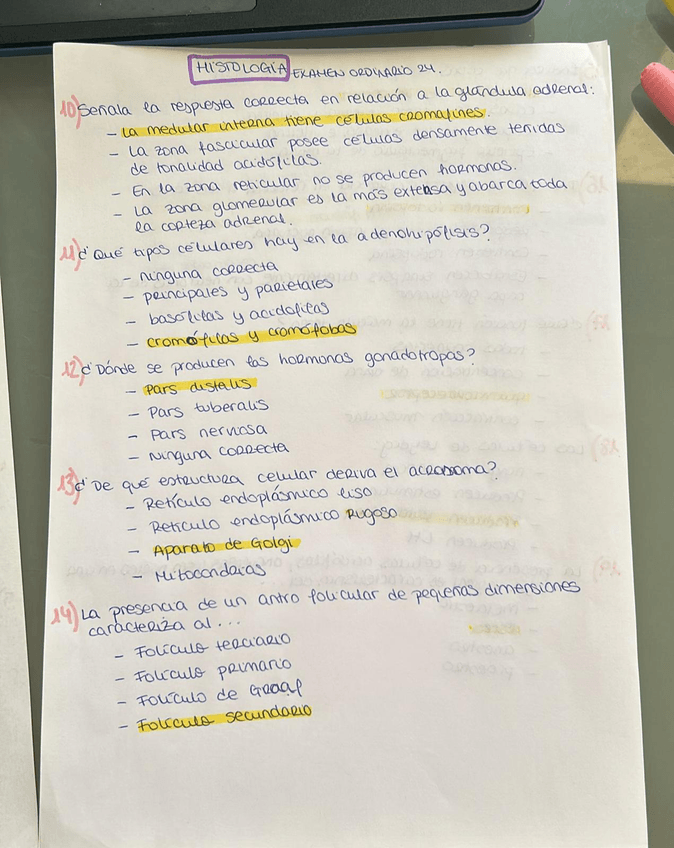 HISTOLOGÍA EXAMEN ORDINARIO 24.
10) Señala la respuesta correcta en relación a la glándula adrenal:
- La medular interna tiene células cromafines.
- La zona fascicular posee células densamente teñidas
de tonalidad acidófilas.
- En la zona reticular no se producen hormonas.
- La zona glomerular es la más extensa y abarca toda
la corteza adrenal.
11) ¿Qué tipos celulares hay en la adenohipófisis?
- ninguna correcta
- principales y parietales
- basófilas y acidófilas
- cromófilas y cromófobas
12) ¿Dónde se producen las hormonas gonadotropas?
- Pars distalis
- Pars tuberalis
- Pars nerviosa
- Ninguna correcta
13) ¿De qué estructura celular deriva el acrosoma?
- Retículo endoplásmico liso
- Retículo endoplásmico Rugoso
- Aparato de Golgi
- Mitocondrias
14) La presencia de un antro folicular de pequeñas dimensiones
caracteriza al...
- Folículo terciario
- Folículo primario
- Folículo de Graaf
- Folículo secundario